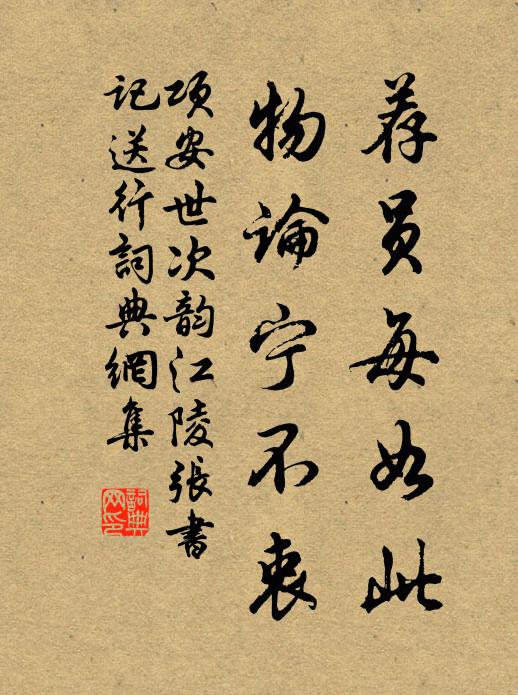 荐员每如此
物论宁不衷
项安世次韵江陵张书
记送行词典网集
词典网印